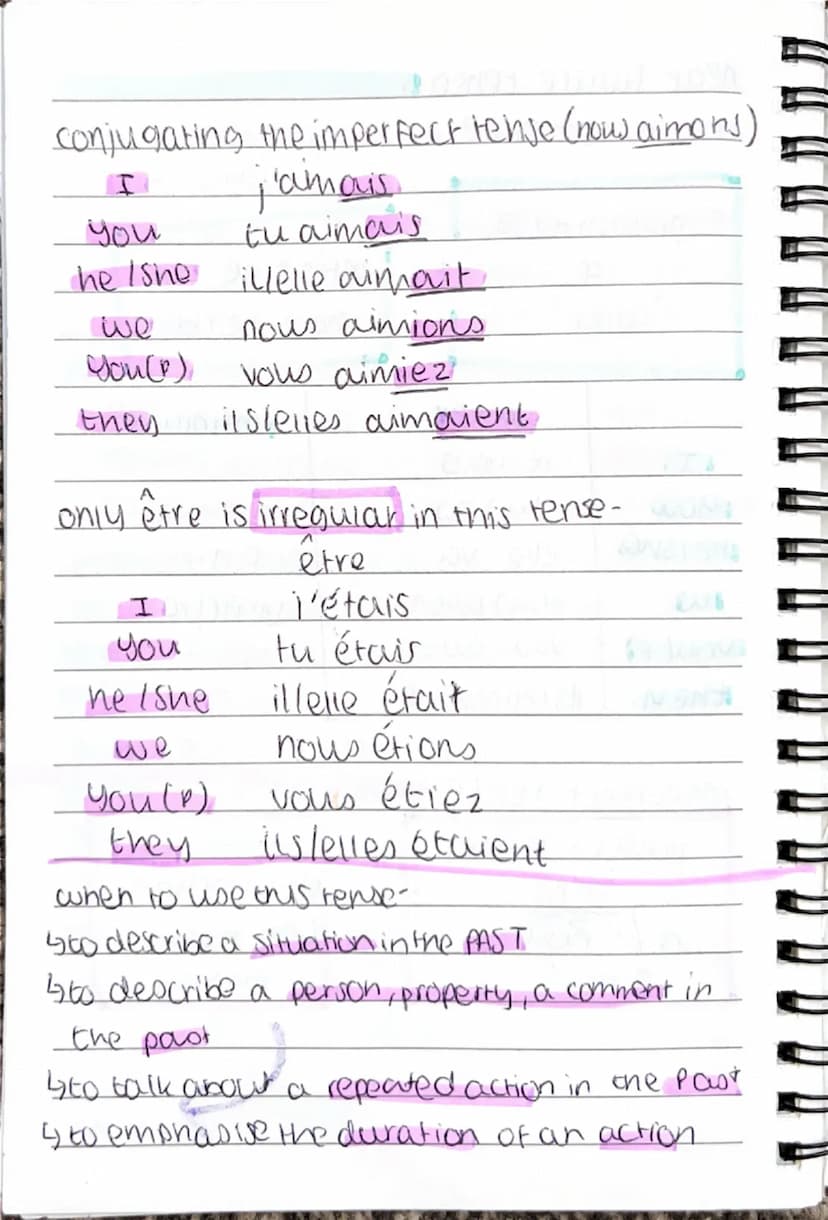 conjugating the imperfect tense (nous aimons)
I j'amais
you tu aimais
he/she il/elle aimait
we nous aimions
you(p) vous aimiez
they ils/elles aimaient
only être is irregular in this tense-
être
I j'étais
you tu étais
he/she il/elle était
we nous étions
you(p) vous étiez
they ils/elles étaient
when to use this tense-
↳to describe a situation in the PAST
↳to describe a person, property, a comment in
the past
↳to talk about a repeated action in the past
↳to emphasise the duration of an action